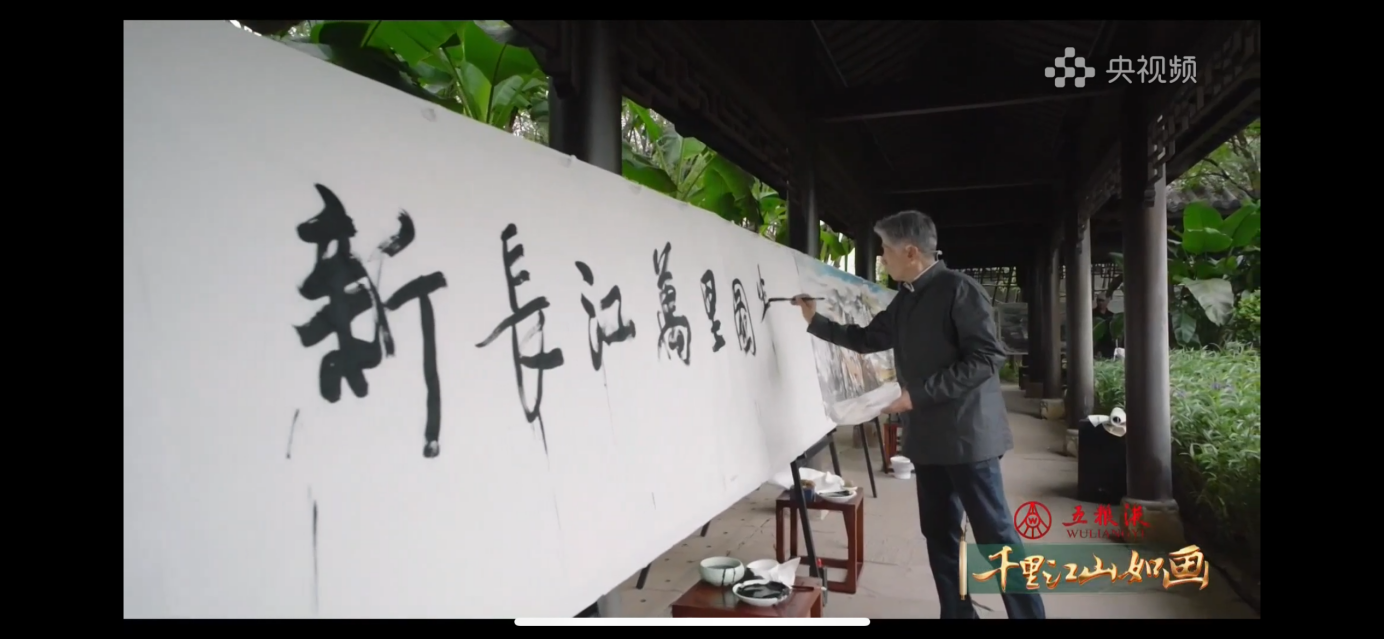 央视频
新長江萬里圖
五粮液
千里江山如画